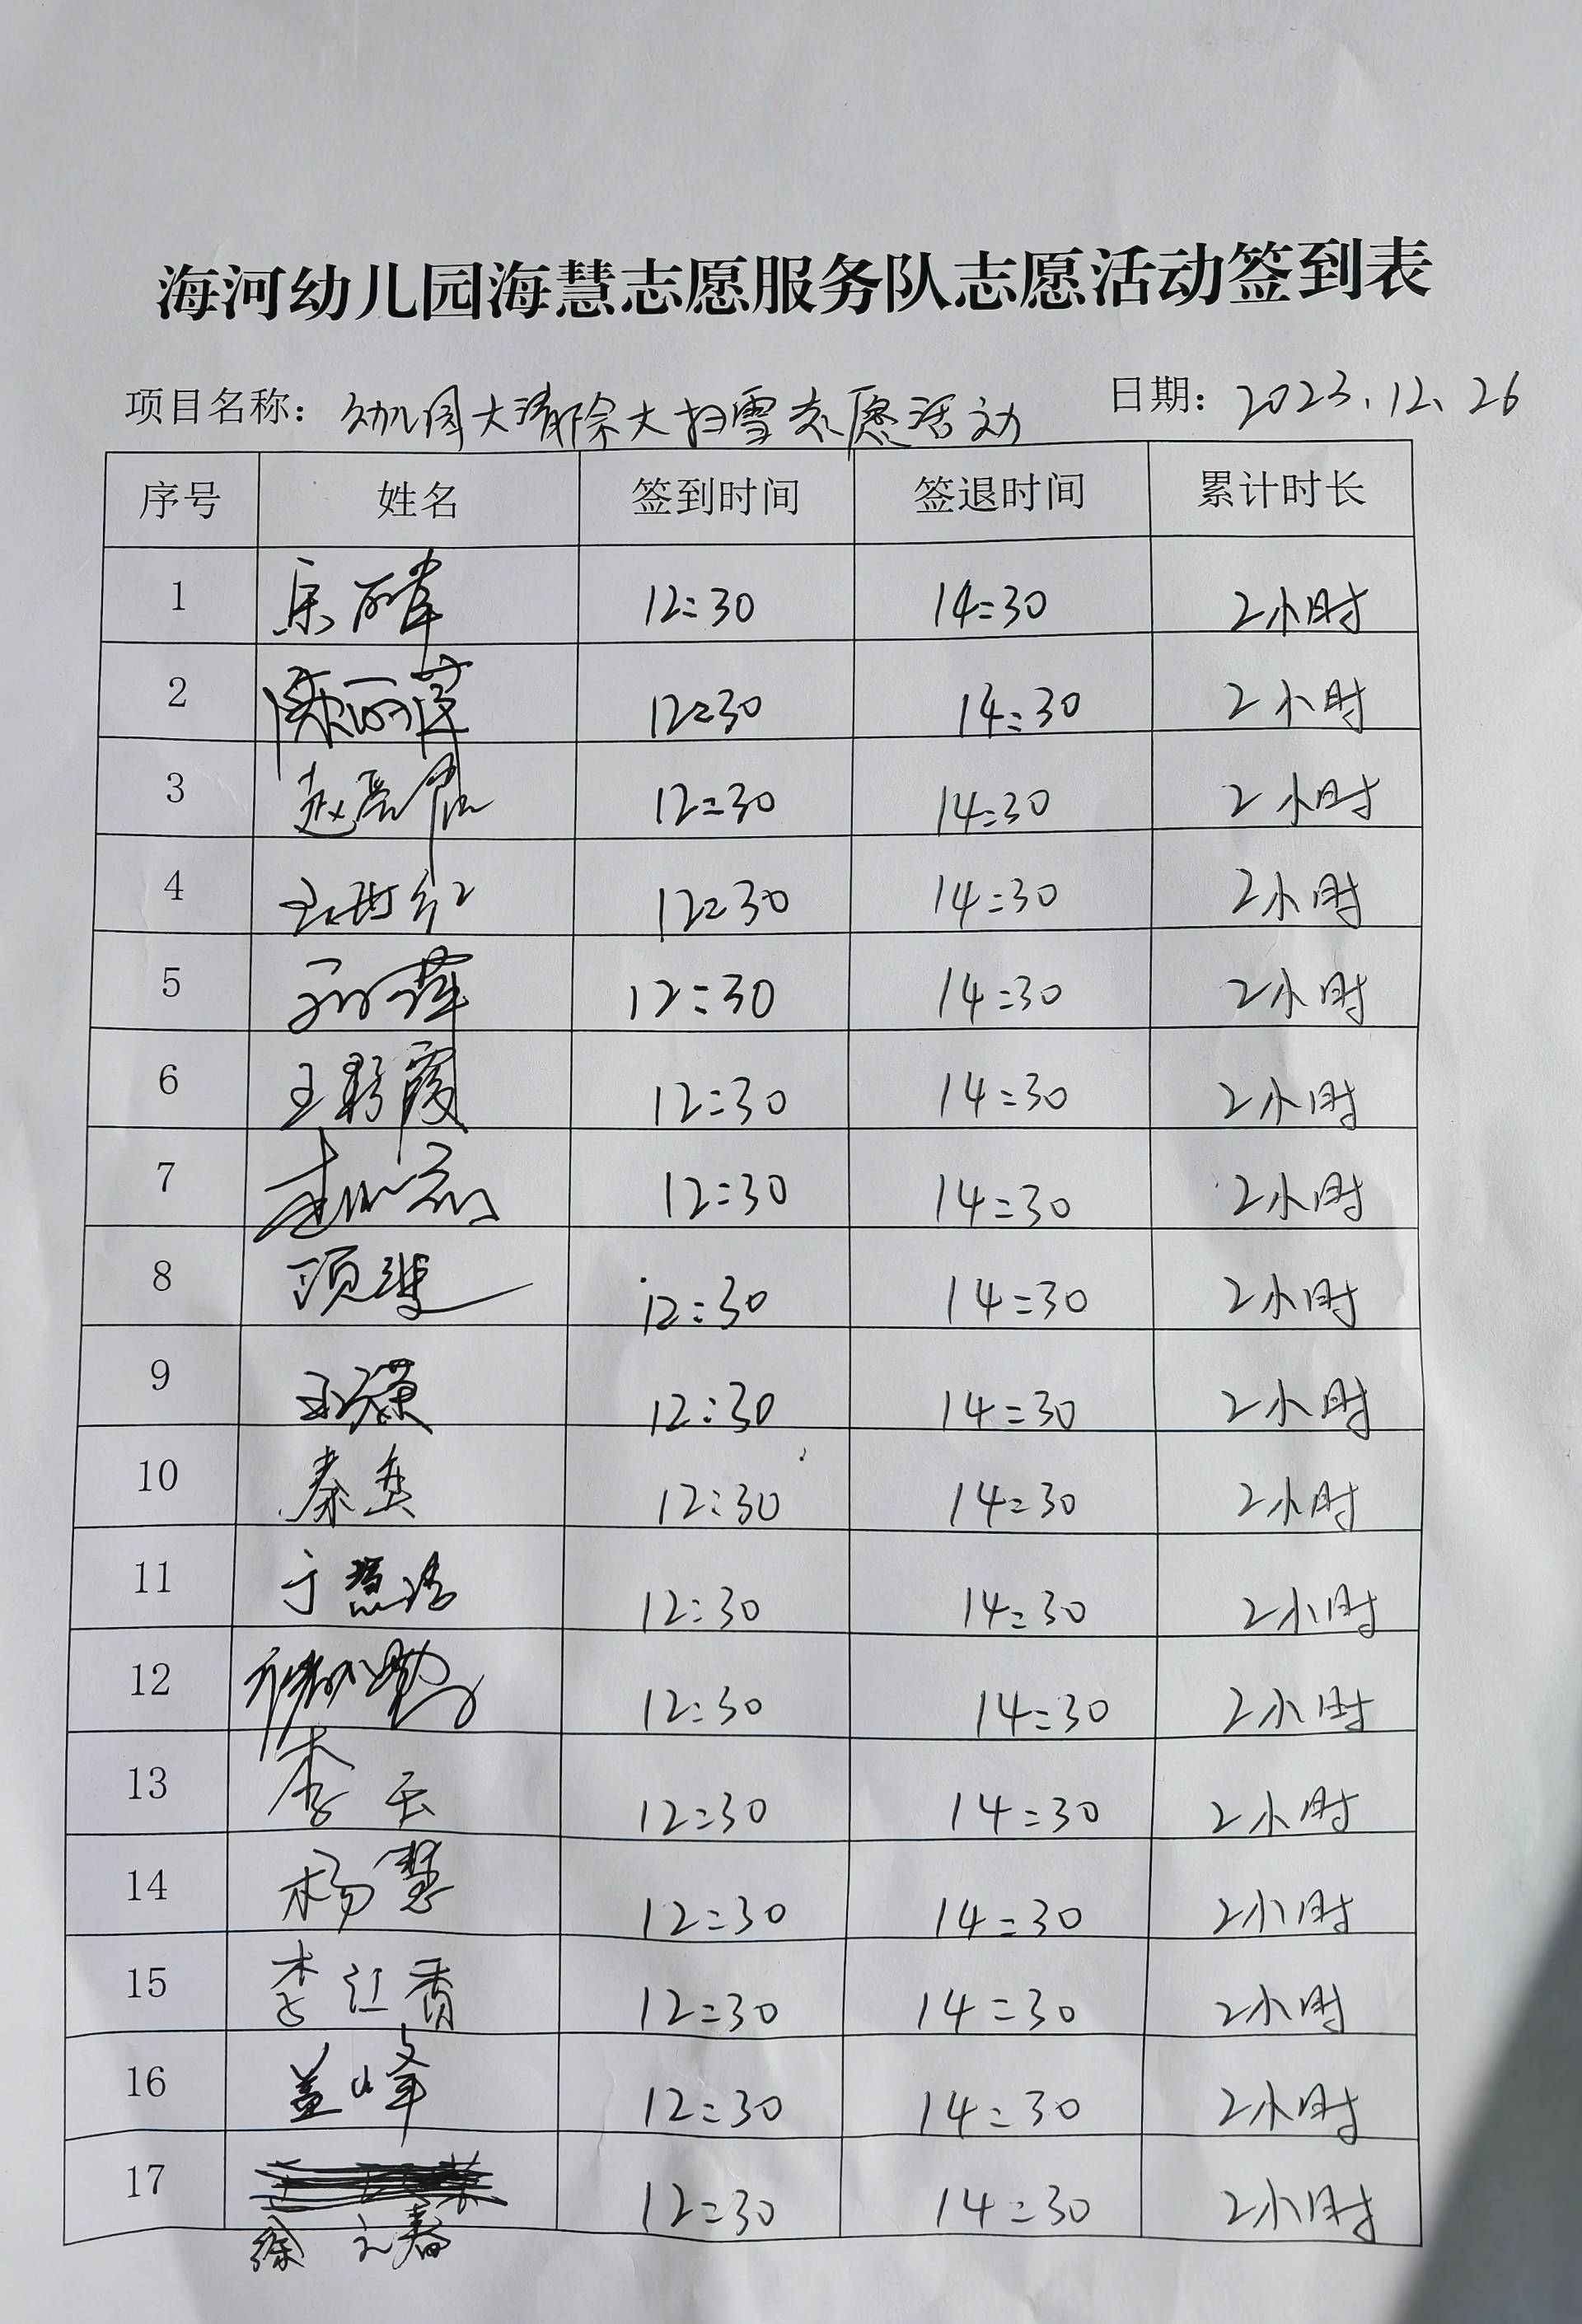 海河幼儿园海慧志愿服务队志愿活动签到表
项目名称：幼儿园大清除大扫雪志愿活动 日期：2023.12.26
序号 姓名 签到时间 签退时间 累计时长
1 12:30 14:30 2小时
2 12:30 14:30 2小时
3 12:30 14:30 2小时
4 12:30 14:30 2小时
5 孙萍 12:30 14:30 2小时
6 王彩霞 12:30 14:30 2小时
7 12:30 14:30 2小时
8 12:30 14:30 2小时
9 12:30 14:30 2小时
10 秦 12:30 14:30 2小时
11 于 12:30 14:30 2小时
12 12:30 14:30 2小时
13 李云 12:30 14:30 2小时
14 杨慧 12:30 14:30 2小时
15 李红香 12:30 14:30 2小时
16 盖峰 12:30 14:30 2小时
17 12:30 14:30 2小时
徐元春